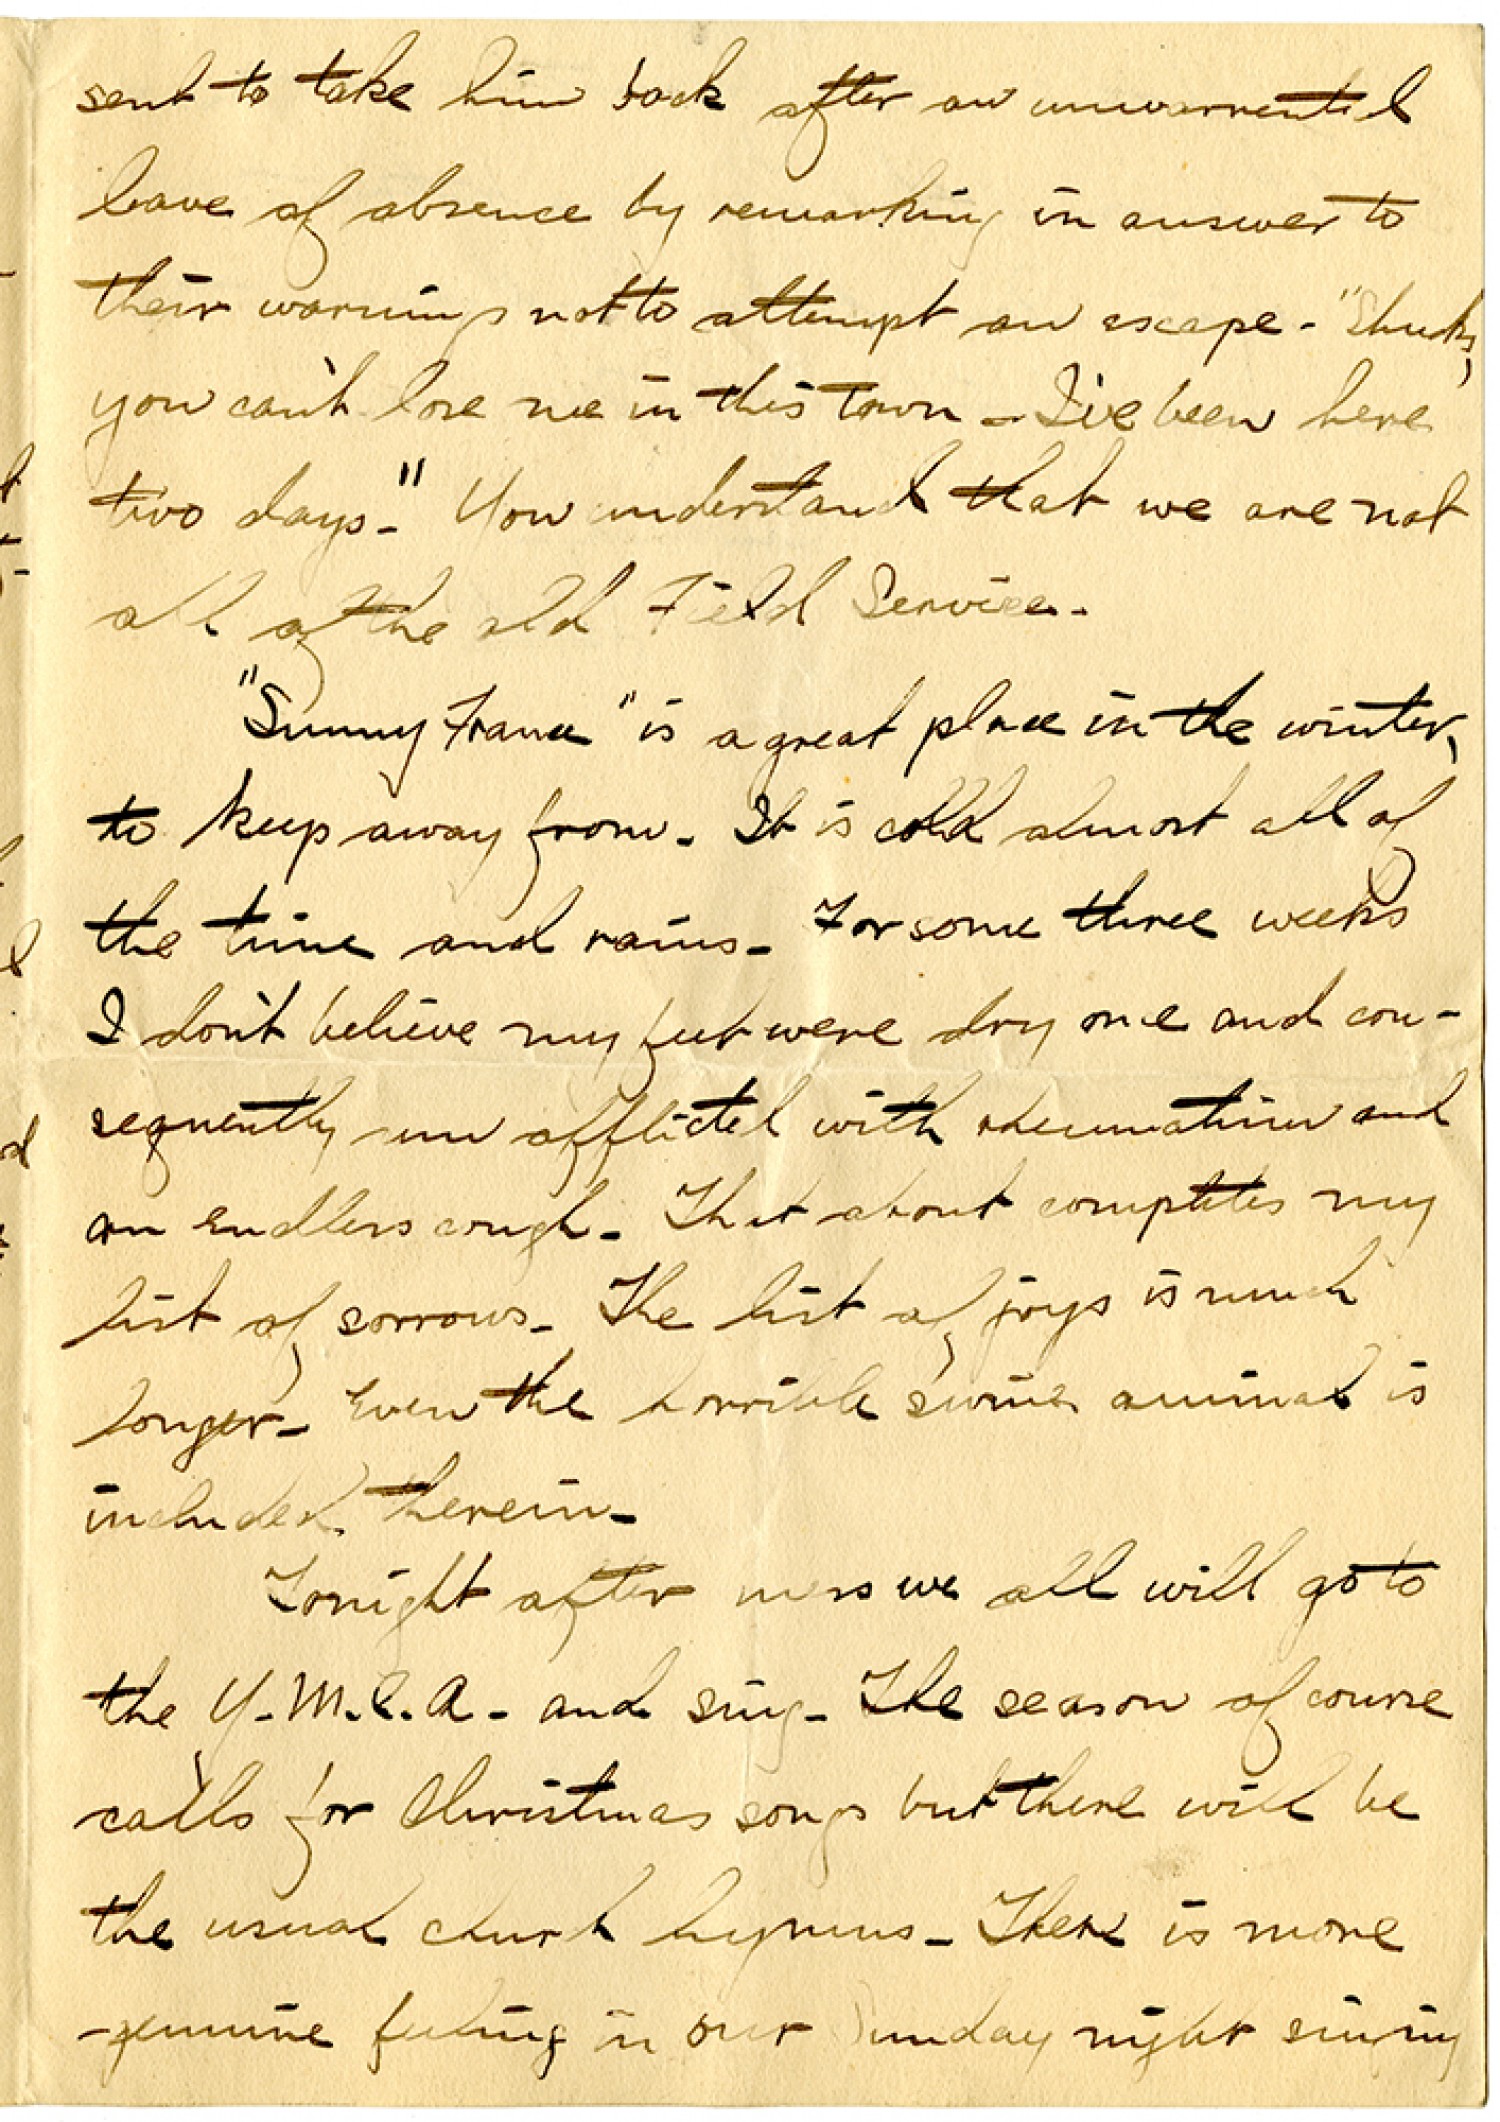 sent to take him back after an unwarrented
leave of absence by remarking in answer to
their warnings not to attempt an escape - "Shucks,
you can't lose me in this town - I've been here
two days-" You understand that we are not
all of the old Field Service-
"Sunny France" is a great place in the winter,
to keep away from- It is cold almost all of
the time and rains- For some three weeks
I don't believe my feet were dry once and con-
sequently am afflicted with rheumatism and
an endless cough- That about completes my
list of sorrows- The list of joys is much
longer- Even the horrible swine animal is
included therein-
Tonight after mess we all will go to
the Y.M.C.A- and sing- The season of course
calls for Christmas songs but there will be
the usual church hymns- There is more
genuine feeling in our Sunday night singing